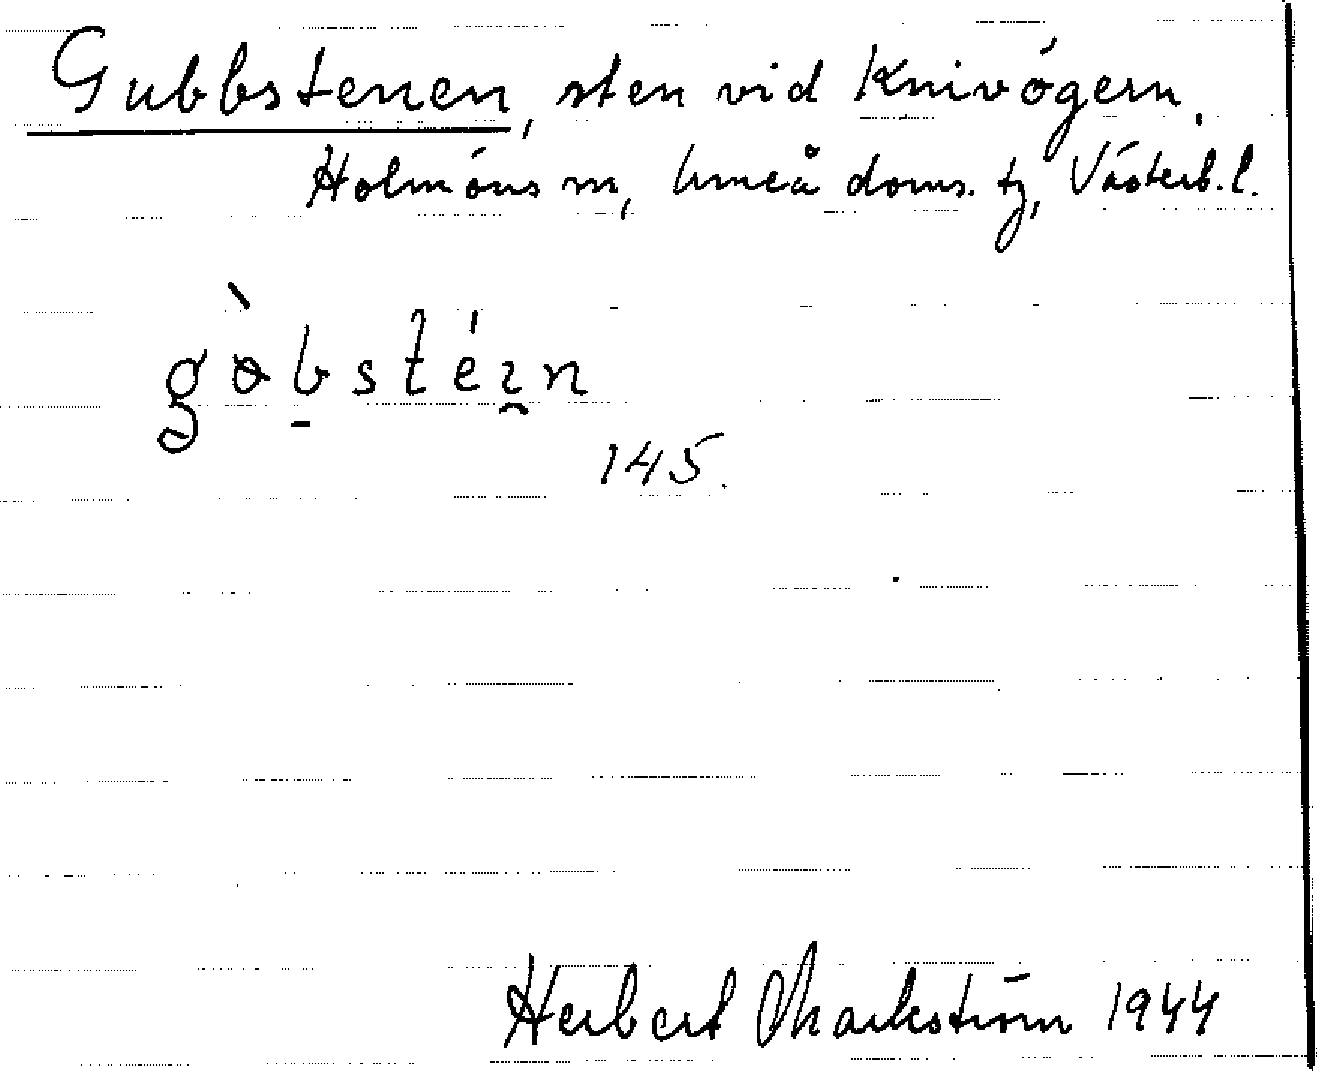 Gubbstenen, sten vid Knivögern.
Holmöns sn, Umeå doms. tg, Västerb. l.
gòbstén
145.
Herbert Markström 1944